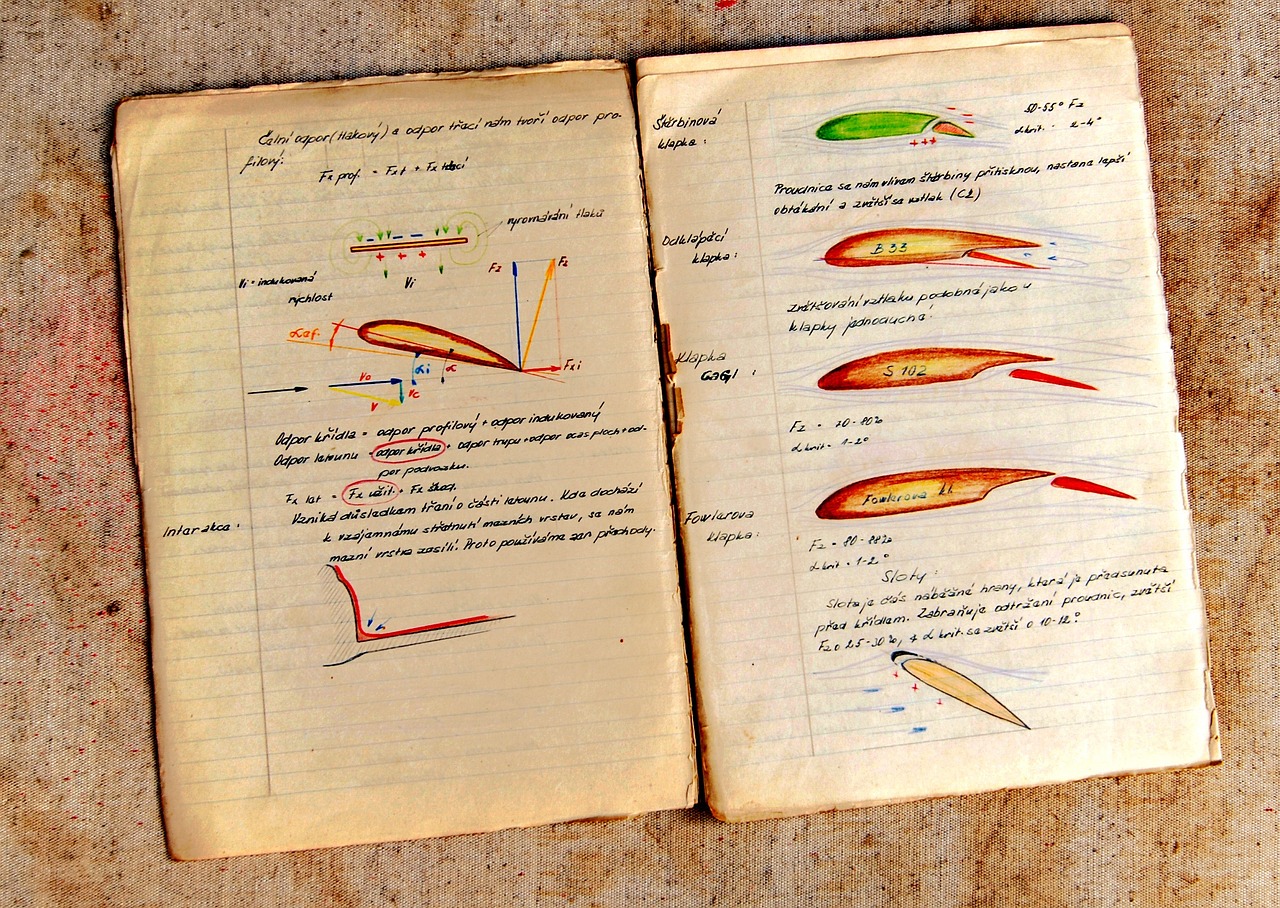 Čelní odpor (tlakový) a odpor třecí nám tvoří odpor pro-
filový:
Fx prof. = Fx t + Fx třecí
vyrovnávání tlaků
Vi = indukovaná
rychlost
Vi
Fz
Fz
αef.
αi
α
Fxi
Vo
Vc
V
Odpor křídla = odpor profilový + odpor indukovaný
Odpor letounu = odpor křídla + odpor trupu + odpor ocas ploch + od-
por podvozku.
Fx let = Fx užit. + Fx škod.
Interakce:
Vzniká důsledkem tření o části letounu. Kde dochází
k vzájemnému střetnutí mezních vrstev, se nám
mezní vrstva zesílí. Proto používáme zan přechody.
Štěrbinová
klapka:
50-55° Fz
αkrit. 2-4°
Proudnice se nám vlivem štěrbiny přitisknou, nastane lepší
obtékání a zvětší se vztlak (Cz)
Odklápěcí
klapka:
B 33
zvětšování vztlaku podobné jako u
klapky jednoduché.
Klapka
GaGI :
S 102
Fz = 70-80%
αkrit = 1-2°
Fowlerova
klapka:
Fowlerova kl.
Fz = 80-88%
αkrit = 1-2°
Sloty:
Slot je část náběžné hrany, která je předsunuta
před křídlem. Zabraňuje odtržení proudnic, zvětší
Fz o 25-30%, + αkrit. se zvětší o 10-12°.